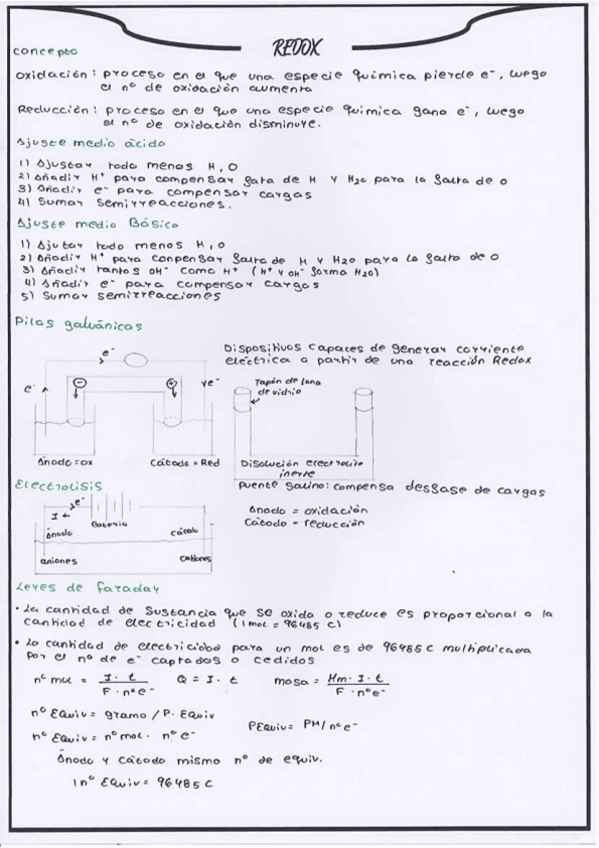 REDOX
concepto
Oxidación: proceso en el que una especie química pierde e⁻, luego
el nº de oxidación aumenta
Reducción: proceso en el que una especie química gana e⁻, luego
el nº de oxidación disminuye.
Ajuste medio ácido
1) Ajustar todo menos H, O
2) Añadir H⁺ para compensar falta de H y H2O para la falta de O
3) Añadir e⁻ para compensar cargas
4) Sumar semirreacciones.
Ajuste medio Básico
1) Ajutar todo menos H, O
2) Añadir H⁺ para conpensar falta de H y H2O para la falta de O
3) Añadir tantos OH⁻ como H⁺ (H⁺ y OH⁻ forma H2O)
4) Añadir e⁻ para compensar cargas
5) Sumar semirreacciones
Pilas galvánicas
Dispositivos capaces de generar corriente
eléctrica a partir de una reacción Redox
e⁻
e⁻ − + e⁻
Tapón de lana
de vidrio
Ánodo = ox Cátodo = Red
Disolución electrolito
inerte
Puente salino: compensa desfase de cargas
Electrolisis
e⁻
I
Batería
Ánodo
aniones cationes
Ánodo = oxidación
Cátodo = reducción
Leyes de Faraday
• La cantidad de sustancia que se oxida o reduce es proporcional a la
cantidad de electricidad (1 mol = 96485 C)
• La cantidad de electricidad para un mol es de 96485 C multiplicada
por el nº de e⁻ captados o cedidos
nº mol = I · t / F · nº e⁻ Q = I · t masa = Mm · I · t / F · nº e⁻
nº Equiv = gramo / P. Equiv
PEquiv = PM / nº e⁻
nº Equiv = nº mol · nº e⁻
Ánodo y cátodo mismo nº de equiv.
1 nº Equiv = 96485 C